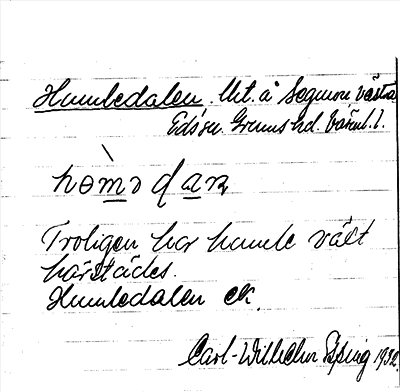 Humledalen. Utt. å Segmon västra
Eds sn. Grums hd. Värml. l.
hòmə dan
Troligen har humle växt
härstädes.
Humledalen ek.
Carl-Wilhelm 1932.